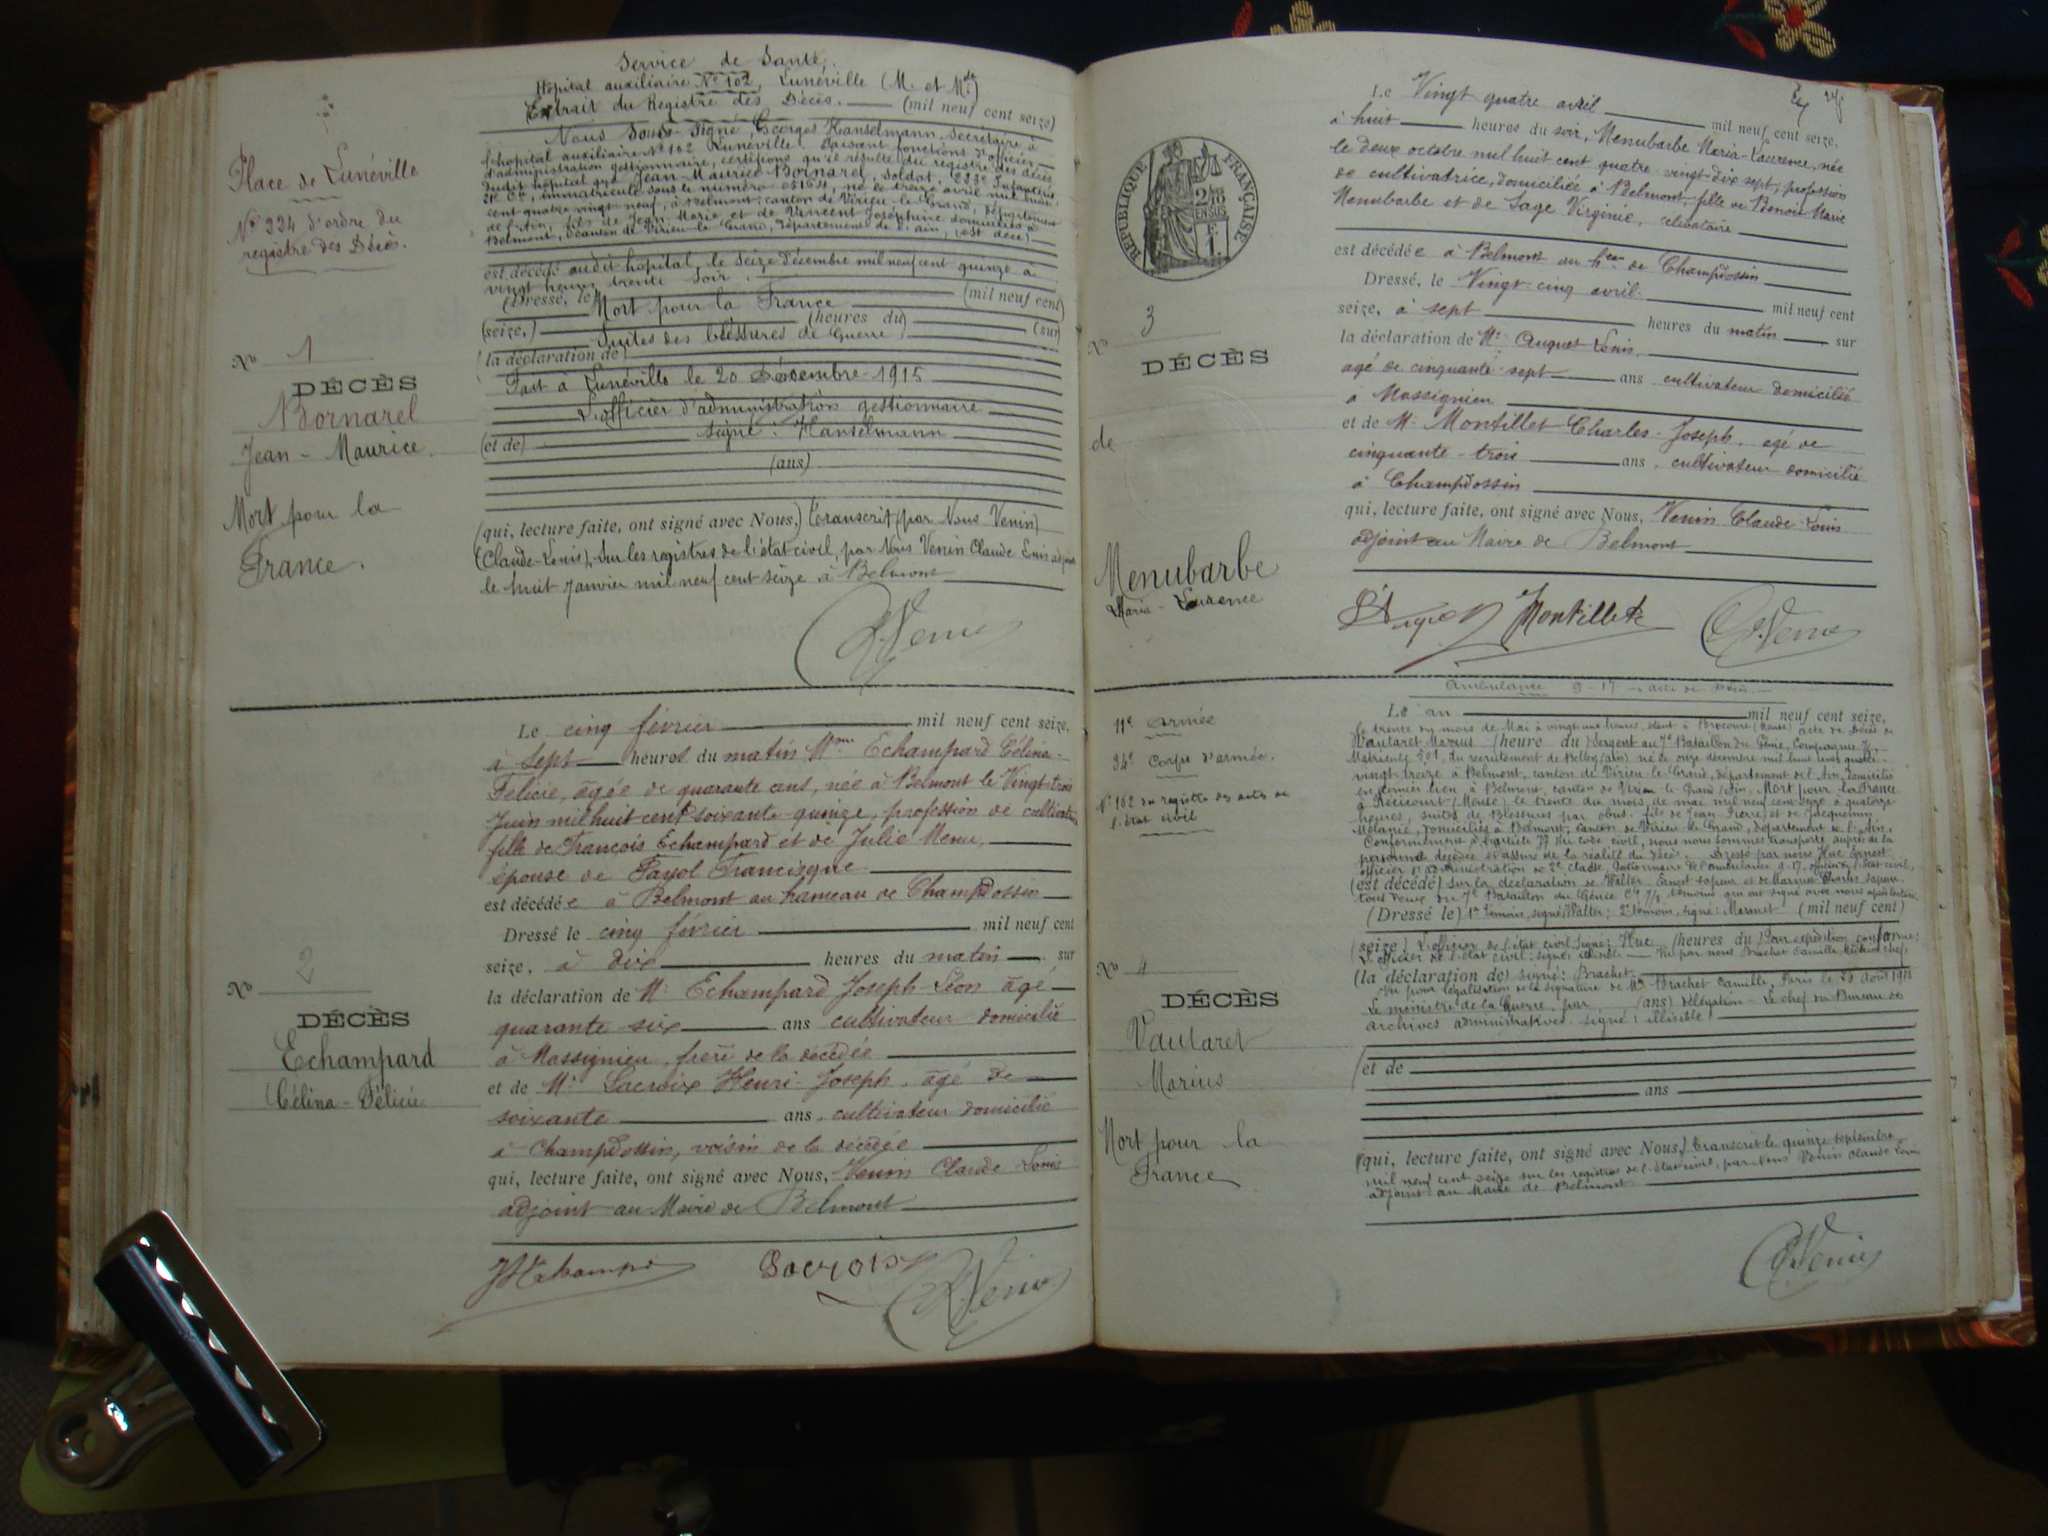 Service de Santé,
Hôpital auxiliaire N° 102, Lunéville (M. et Mlle)
Extrait du Registre des Décès. (mil neuf cent seize)
Nous Sous-signé, Georges Hanselmann, secrétaire à
l'hopital auxiliaire N° 102 Lunéville. faisant fonctions d'officier
d'administration gestionnaire, certifions qu'il résulte du registre des décès
dudit hôpital que Jean-Maurice Bornarel, soldat, 223e Infanterie
21e Cie, immatriculé sous le numéro 05164, né le treize avril mil huit
cent quatre vingt neuf, à Belmont, canton de Virieu-le-Grand, département
de l'Ain, fils de Jean-Marie et de Vincent Joséphine domiciliés à
Belmont, canton de Virieu-le-Grand, département de l'ain, (est décé)
est décédé audit hôpital, le seize Décembre mil neuf cent quinze à
vingt heures trente soir.
(Dressé, le) Mort pour la France (mil neuf cent)
(seize,) (heures du) (sur)
Suites des blessures de Guerre
(la déclaration de)
Fait à Lunéville le 20 Décembre 1915
L'officier d'administration gestionnaire
(et de) signé : Hanselmann
(ans)
(qui, lecture faite, ont signé avec Nous,) Transcrit (par Nous Venin)
(Claude-Louis), Sur les registres de l'état civil, par Nous Venin Claude Louis adjoint
le huit janvier mil neuf cent seize à Belmont
Place de Lunéville
N° 334 d'ordre du
registre des Décès.
N° 1
DÉCÈS
Bornarel
Jean-Maurice.
Mort pour la
France.
Le cinq février mil neuf cent seize,
à sept heures du matin Mme Echampard Célina-
Félicie, âgée de quarante ans, née à Belmont le Vingt-trois
Juin mil huit cent soixante-quinze, profession de cultivatrice
fille de François Echampard et de Julie Menu,
épouse de Fayol Francisque
est décédée à Belmont au hameau de Champdossin
Dressé le cinq février mil neuf cent
seize, à dix heures du matin sur
la déclaration de Mr Echampard Joseph-Léon âgé
quarante six ans cultivateur domicilié
à Massignieu, frère de la décédée
et de Mr Lacroix Henri-Joseph, âgé de
soixante ans, cultivateur domicilié
à Champdossin, voisin de la décédée
qui, lecture faite, ont signé avec Nous, Venin Claude Louis
adjoint au Maire de Belmont
Lacroix
N° 2
DÉCÈS
Echampard
Célina-Félicie
Le Vingt quatre avril mil neuf cent seize,
à huit heures du soir, Menubarbe Maria-Laurence, née
le deux octobre mil huit cent quatre-vingt-dix sept, profession
de cultivatrice, domiciliée à Belmont, fille de Benoit Marie
Menubarbe et de Sage Virginie, célibataire
est décédée à Belmont au heau de Champdossin
Dressé, le Vingt-cinq avril mil neuf cent
seize, à sept heures du matin sur
la déclaration de Mr Auguet Louis
agé de cinquante-sept ans cultivateur domicilié
à Massignieu
et de Mr Montillet Charles-Joseph, agé de
cinquante-trois ans, cultivateur domicilié
à Champdossin
qui, lecture faite, ont signé avec Nous, Venin Claude Louis
adjoint au Maire de Belmont
Montillet
RÉPUBLIQUE FRANÇAISE
2/10 EN SUS
F
1.
N° 3
DÉCÈS
de
Menubarbe
Maria-Laurence
Ambulance 9-17 acte de décès
Le an mil neuf cent seize,
le trente du mois de Mai à vingt-une heures, étant à Brocourt (Meuse) acte de décès de
Vautaret Marius (heure du) Sergent au 7e Bataillon du Génie, Compagnie
Matricule 201, du recrutement de Belley (Ain) né le onze décembre mil huit cent quatre-
vingt-treize à Belmont, canton de Virieu-le-Grand, département de l'Ain, domicilié
en dernier lieu à Belmont, canton de Virieu-le-Grand (Ain), Mort pour la France
à Récicourt (Meuse) le trente du mois de mai mil neuf cent seize à quatorze
heures, suites de Blessures par obus. fils de Jean-Pierre et de Jacquemin
Mélanie, domiciliés à Belmont, canton de Virieu-le-Grand, département de l'Ain.
Conformément à l'article 77 du code civil, nous nous sommes transporté auprès de la
personne décédée et assuré de la réalité du décès. Dressé par nous Huc Ernest
officier d'administration de 2e classe, gestionnaire de l'ambulance 9-17, officier de l'état civil,
(est décédé) sur la déclaration de Walter Ernest sapeur et de Charles sapeur
tous deux du 7e Bataillon du Génie témoins qui ont signé avec nous après lecture
(Dressé le) 1er témoin, signé : Walter ; 2e témoin, signé : (mil neuf cent)
(seize) L'officier de l'état civil, signé : Huc (heures du) Pour expédition conforme :
L'officier de l'état civil : signé : illisible Vu par nous Brachet Camille
(la déclaration de) signé : Brachet.
Vu pour légalisation de la signature de Mr Brachet Camille, Paris le 23 août 1916
Le ministre de la Guerre, par (ans) délégation - Le chef du Bureau des
archives administratives signé : illisible
(et de
ans
(qui, lecture faite, ont signé avec Nous,) Transcrit le quinze septembre
mil neuf cent seize sur les registres de l'état civil, par Nous Venin Claude Louis
adjoint au Maire de Belmont
11e armée
34e Corps d'armée.
N° 162 du registre des actes de
l'état civil
N° 4
DÉCÈS
Vautaret
Marius
Mort pour la
France